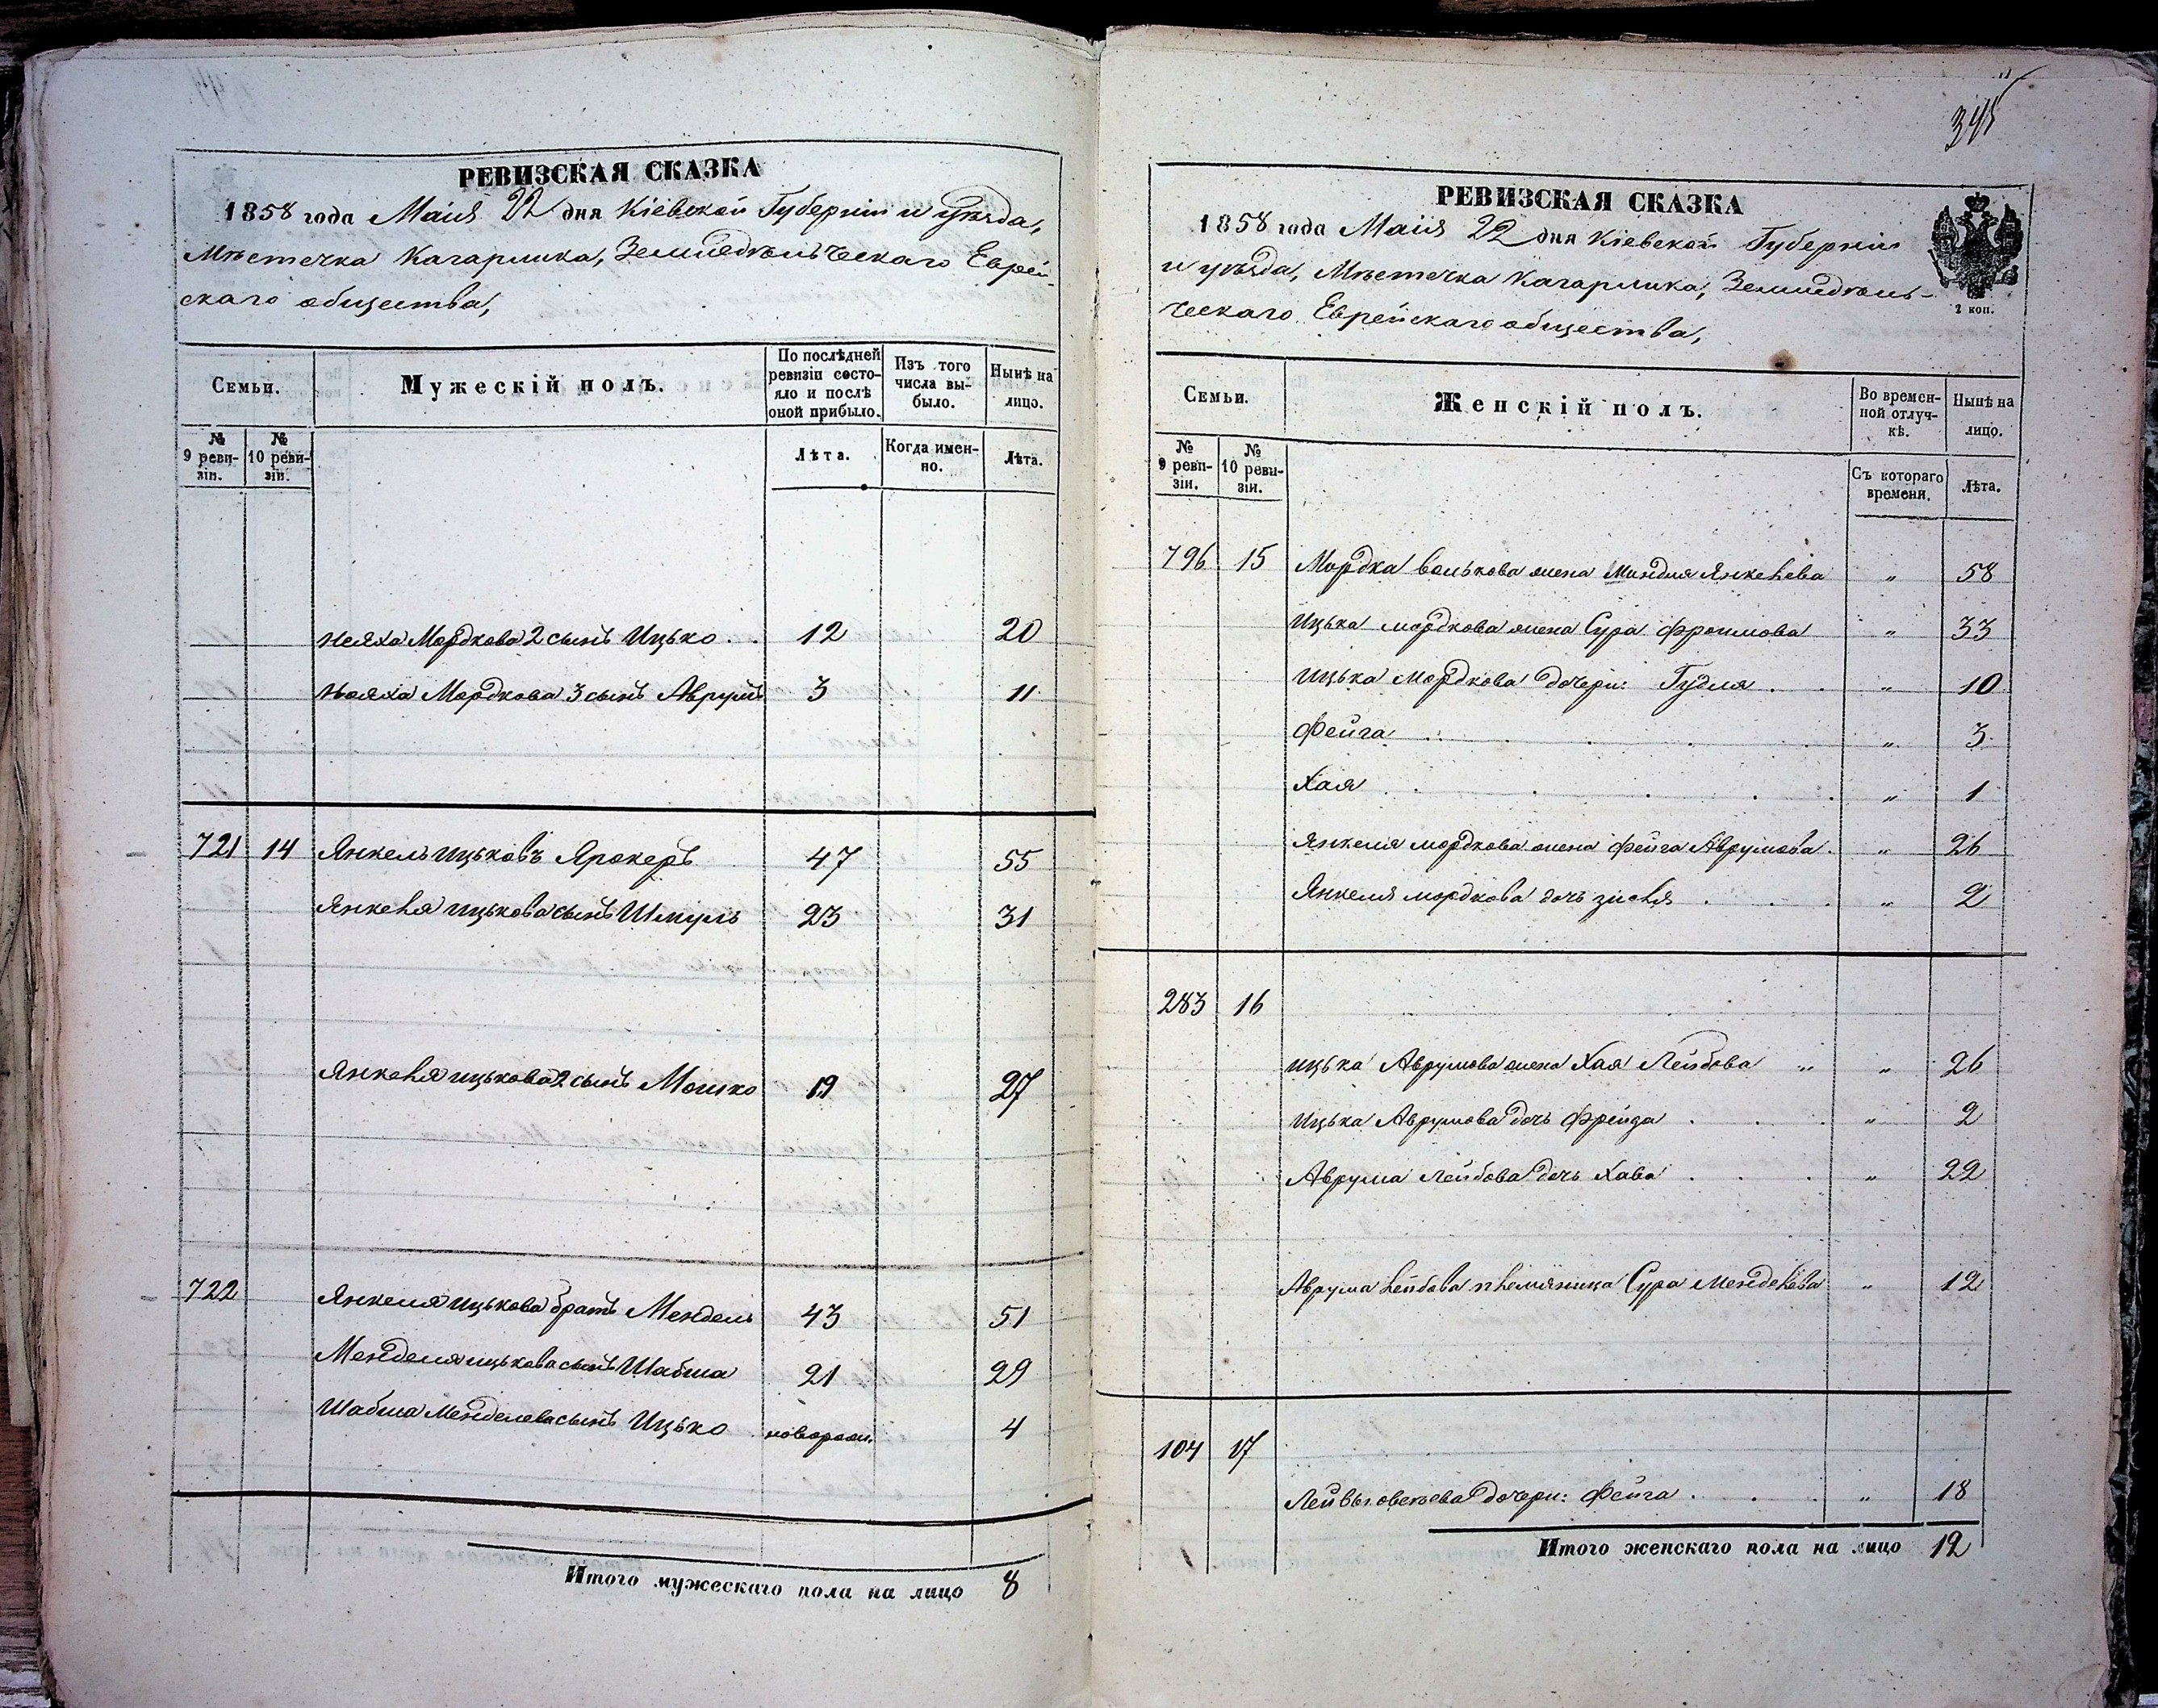 РЕВИЗСКАЯ СКАЗКА
1858 года Маія 22 дня Кіевской Губерніи и уѣзда,
Мѣстечка Кагарлика, Земледѣльческаго Еврей-
скаго общества,
Семьи.
Мужескій полъ.
По послѣдней ревизіи состояло и послѣ оной прибыло.
Изъ того числа выбыло.
Нынѣ на лицо.
№ 9 ревизіи.
№ 10 ревизіи.
Лѣта.
Когда именно.
Лѣта.
Мордкова 2 сынъ Ицько . . 12 20
Мордкова 3 сынъ Аврумъ 3 11
721 14 Янкель Ицьковъ Ярокеръ 47 55
Янкеля Ицькова сынъ Шмуль 23 31
Янкеля Ицькова 2 сынъ Мошко 19 27
722 Янкеля Ицькова братъ Мендель 43 51
Менделя Ицькова сынъ Шабша 21 29
Шабша Менделева сынъ Ицько новорож. 4
Итого мужескаго пола на лицо 8
345
РЕВИЗСКАЯ СКАЗКА
1858 года Маія 22 дня Кіевской Губерніи
и уѣзда, Мѣстечка Кагарлика, Земледѣль-
ческаго Еврейскаго общества,
2 коп.
Семьи.
Женскій полъ.
Во временной отлучкѣ.
Нынѣ на лицо.
№ 9 ревизіи.
№ 10 ревизіи.
Съ котораго времени.
Лѣта.
796 15 Мордка Волькова жена Миндля Янкелева " 58
Ицька Мордкова жена Сура Фроимова " 33
Ицька Мордкова дочери: Гудля . . " 10
Фейга . . . . . " 3
Хая . . . . . " 1
Янкеля Мордкова жена Фейга Аврумова . " 26
Янкеля Мордкова дочь Зисля . . . " 2
283 16
Ицька Аврумова жена Хая Лейбова " " 26
Ицька Аврумова дочь Фрейда . . . " 2
Аврума Лейбова дочь Хава . . . " 22
Аврума Лейбова племяница Сура Менделева " 12
104 17
дочери: Фейга . . . " 18
Итого женскаго пола на лицо 12